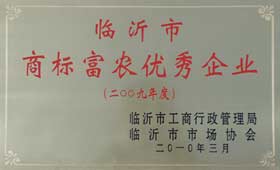 临沂市
商标富农优秀企业
(二〇〇九年度)
临沂市工商行政管理局
临沂市市场协会
二〇一〇年三月